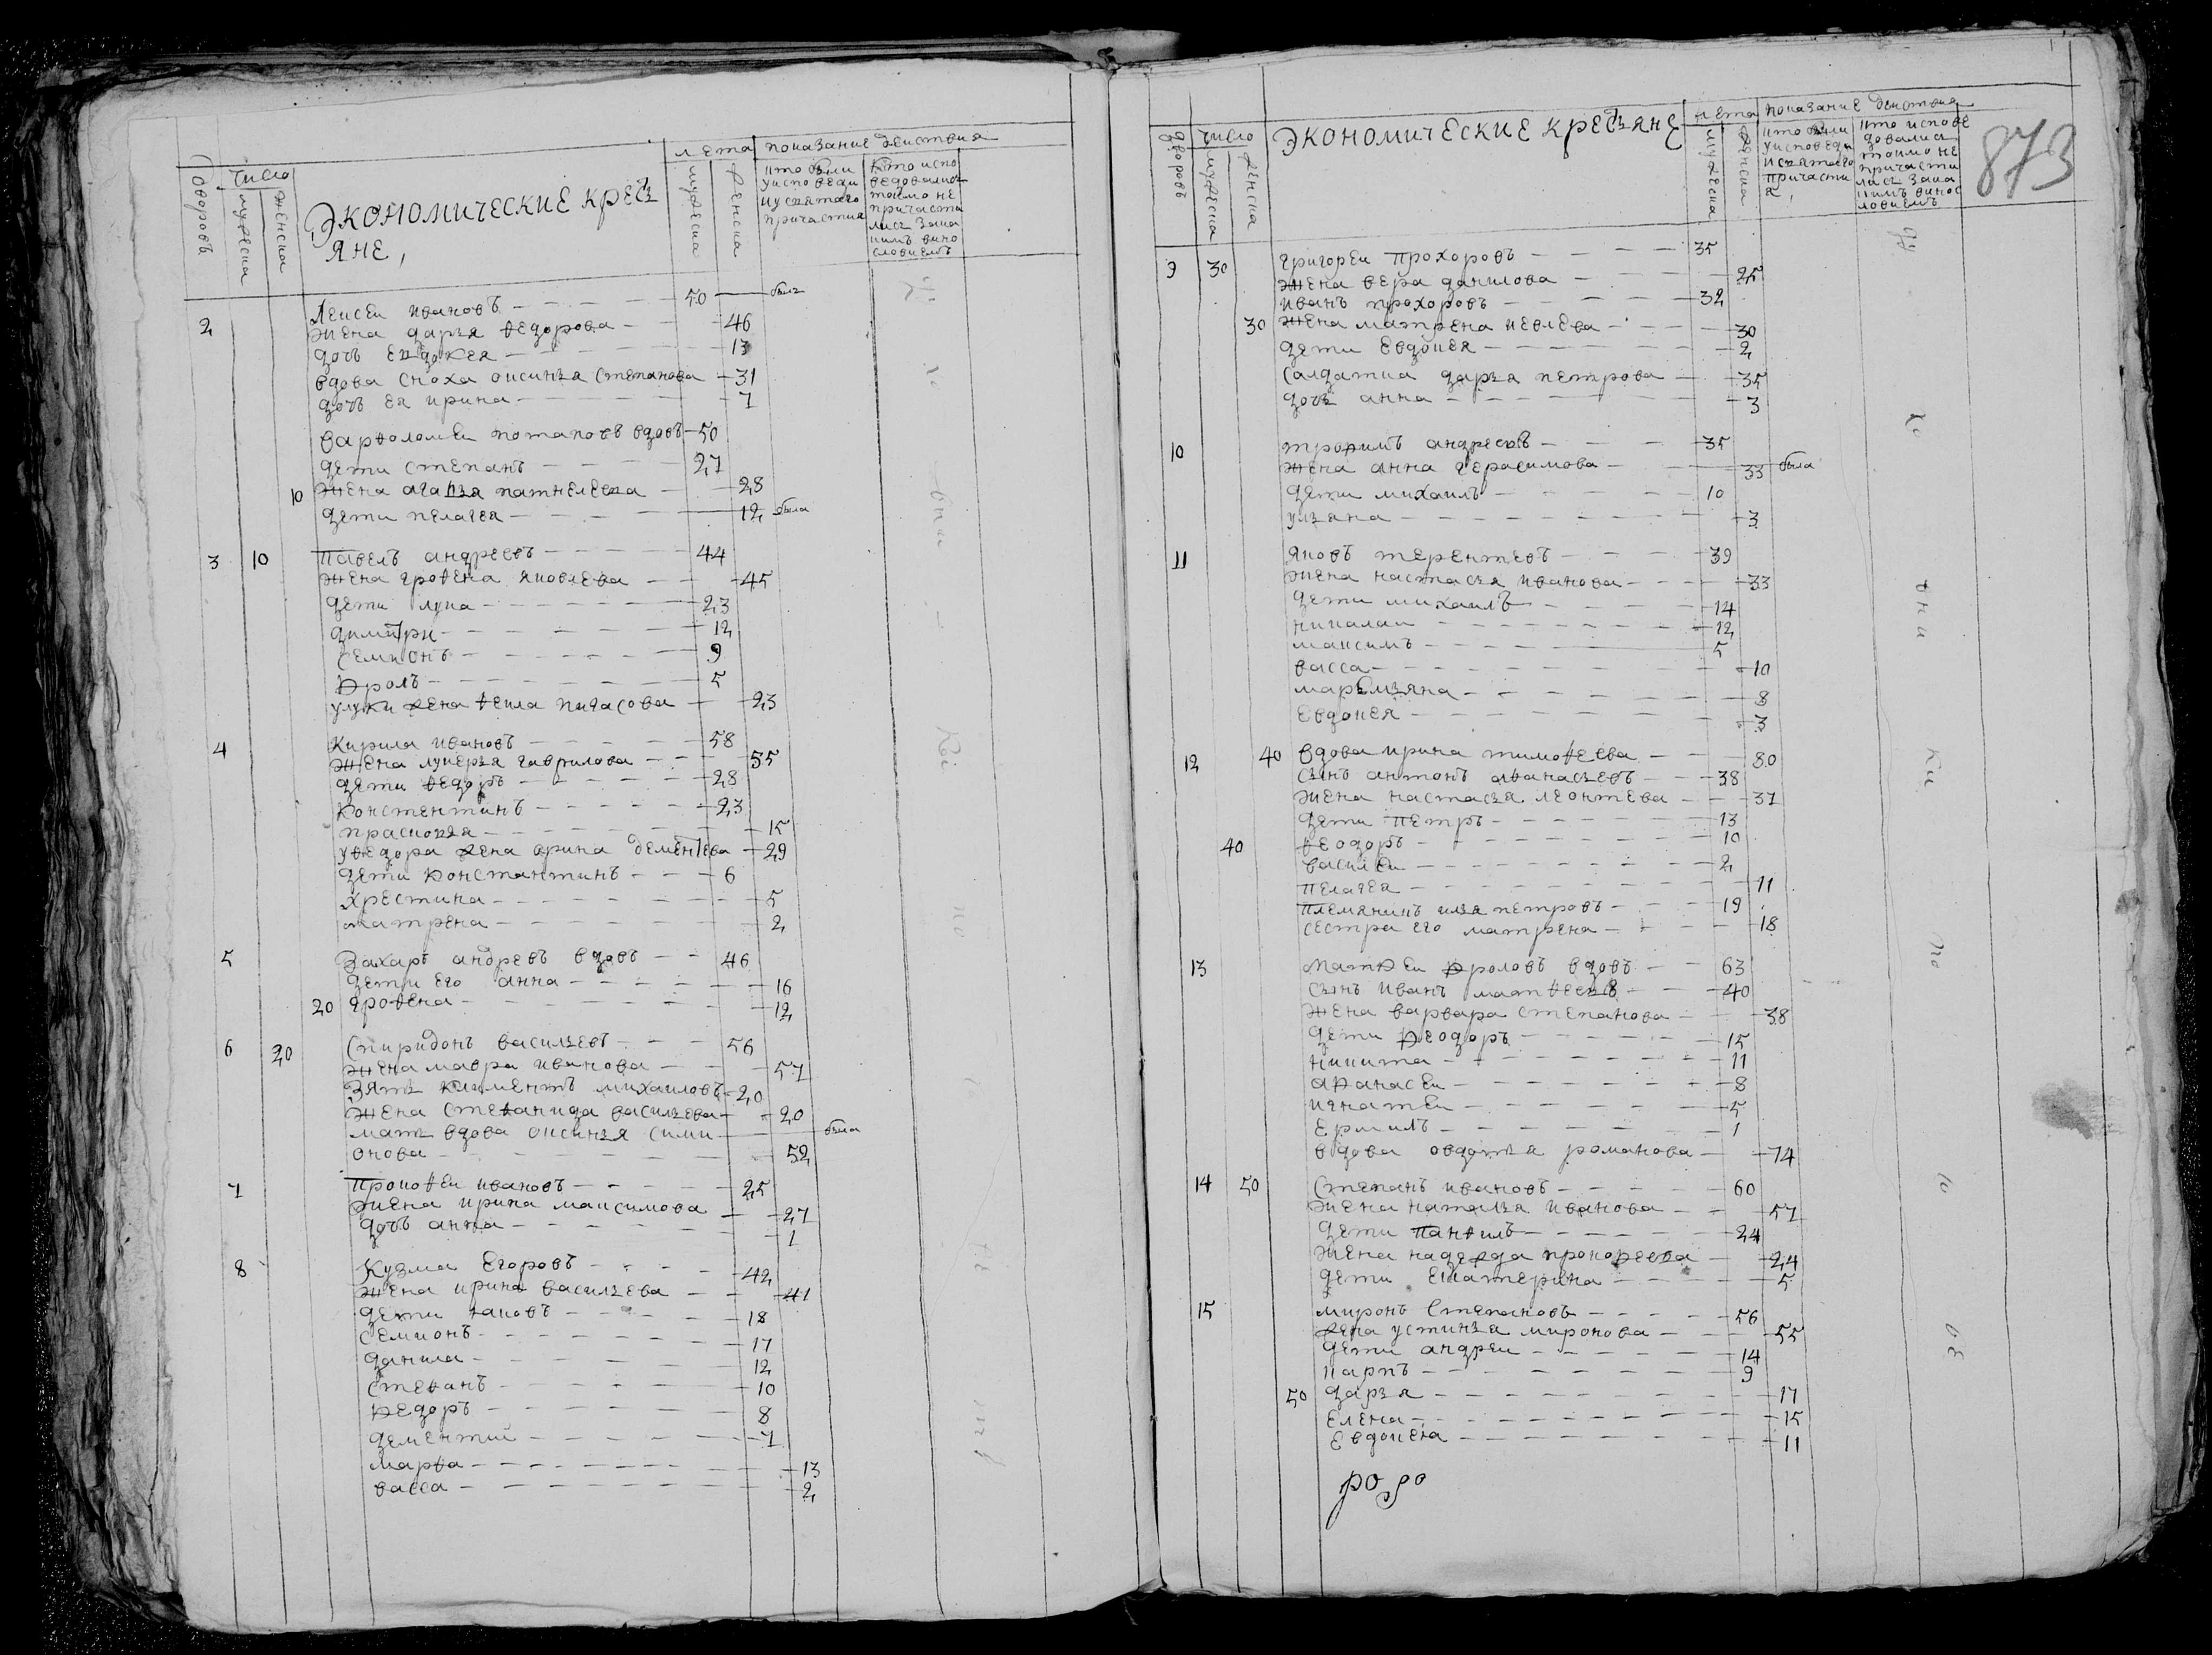 дворовъ
число
мужеска
женска
экономические крест
яне,
лета
мужеска
женска
показание действия
кто были
уисповеди
исвятаго
причастия
кто испо
ведовался
токмо не
причасти
лисъ зака
кимъ вино
словиемъ
2 Аексеи ивановъ 50 былъ
жена даръя ѳедорова 46
дочь евдокея 13
вдова сноха оксинъя степанова 31
дочь ея ирина 7
варѳоломеи потаповъ вдовъ 50
дети степанъ 27
10 жена агаѳъя пантелеева 28
дети пелагея 12 была
3 10 павелъ андреевъ 44
жена гроѳена яковлева 45
дети лука 23
димитри 12
семионъ 9
фролъ 5
улуки жена ѳекла пигасова 23
4 Кирила ивановъ 58
жена лукеръя гаврилова 55
дети ѳедоръ 28
константинъ 23
прасковъя 15
уѳедора жена орина дементева 29
дети константинъ 6
хрестина 5
матрена 2
5 Захаръ андревъ вдовъ 46
дети его анна 16
20 гроѳена 12
6 20 Спиридонъ василъевъ 56
жена мавра иванова 57
зятъ климентъ михаиловъ 20
жена стеѳанида василъева 20
матъ вдова оксинъя сими была
онова 52
7 прокоѳеи ивановъ 25
жена ирина максимова 27
дочъ анна 1
8 Кузма Егоровъ 42
жена ирина василъева 41
дети яковъ 18
семионъ 17
данила 12
стеѳанъ 10
федоръ 8
дементий 7
марѳа 13
васса 2
873
дворовъ
число
мужеска
женска
экономические крестъяне
лета
мужеска
женска
показание действия
кто были
уисповеди
исвятаго
причасти
я,
кто испове
довался
токмо не
причасти
лисъ зака
кимъ винос
ловиемъ
9 30 григореи прохоровъ 35
жена вера данилова 25
иванъ прохоровъ 32
30 жена матрена иевлева 30
дети евдокея 2
салдатка даръя петрова 35
дочъ анна 3
10 трофимъ андреевъ 35
жена анна герасимова 33 была
дети михаилъ 10
улъяна 3
11 яковъ терентевъ 39
жена настасъя иванова 33
дети михаилъ 14
никалаи 12
максимъ 5
васса 10
маремъяна 8
евдокея 3
12 40 вдова ирина тимоѳеева 80
сынъ антонъ аѳанасъевъ 38
жена настасъя леонтева 37
дети петръ 13
40 ѳеодоръ 10
василеи 2
пелагея 11
племяникъ илъя петровъ 19
сестра его матрена 18
13 матфеи фроловъ вдовъ 63
сынъ иванъ матѳеевъ 40
жена варвара степанова 38
дети феодоръ 15
никита 11
афанасеи 8
игнатеи 5
ермилъ 1
вдова овдотъя романова 74
14 50 степанъ ивановъ 60
жена наталъя иванова 57
дети панѳилъ 24
жена надежда прокофеева 24
дети екатерина 5
15 миронъ степановъ 56
жена устинъя миронова 55
дети андреи 14
карпъ 9
50 даръя 17
елена 15
евдокея 11